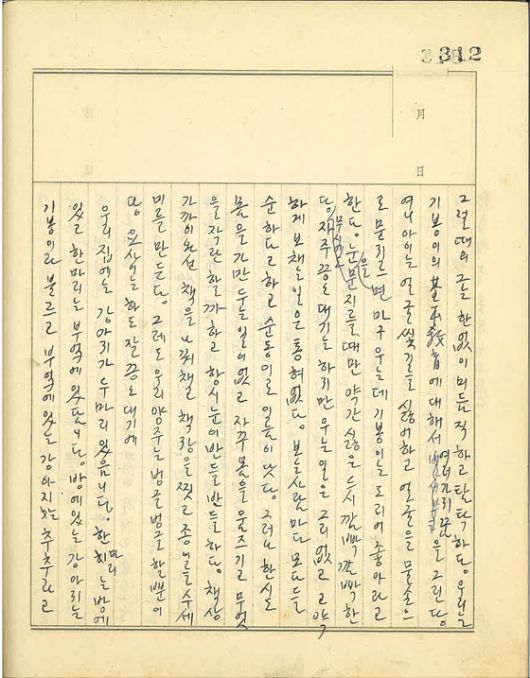 312
月
日
그럴때의 그는 한없이 미듬직하고 탐탁하다. 우리는
기봉이의 基本敎育에 대해서 여러가지 꿈을 그린다.
여니아이는 얼굴씻기를 싫어하고 얼굴을 물손으
로 문지르면 마구 우는데 기봉이는 도리어 좋아라고
한다. 눈을 문지를때만 약간 싫은 듯시 깜빡 깜빡 한
다. 자주 끙도대기는 하지만 우는 일은 그리 없고 고약
하게 보채는일은 통혀없다. 보는사람마다 모다들
순하다고 하고 순동이로 이름이 낫다. 그러나 한시도
몸을 가만두는 일이없고 자꾸 몸을 움즈기고 무엇
을 작란할까하고 항시 눈이 반들반들하다. 책상
가까이오면 책을 나꿔채 책장을 찟고 종이를 수세
미를 만든다. 그래도 우리 양주는 벙글벙글 할뿐이
다. 요사이는 하도 잘 끙도대기에
우리집에는 강아지가 두마리 있읍니다. 한마리는 방에
있고 한마리는 부엌에 있답니다. 방에있는 강아지는
기봉이라 불르고 부엌에 있는 강아지는 추추라고